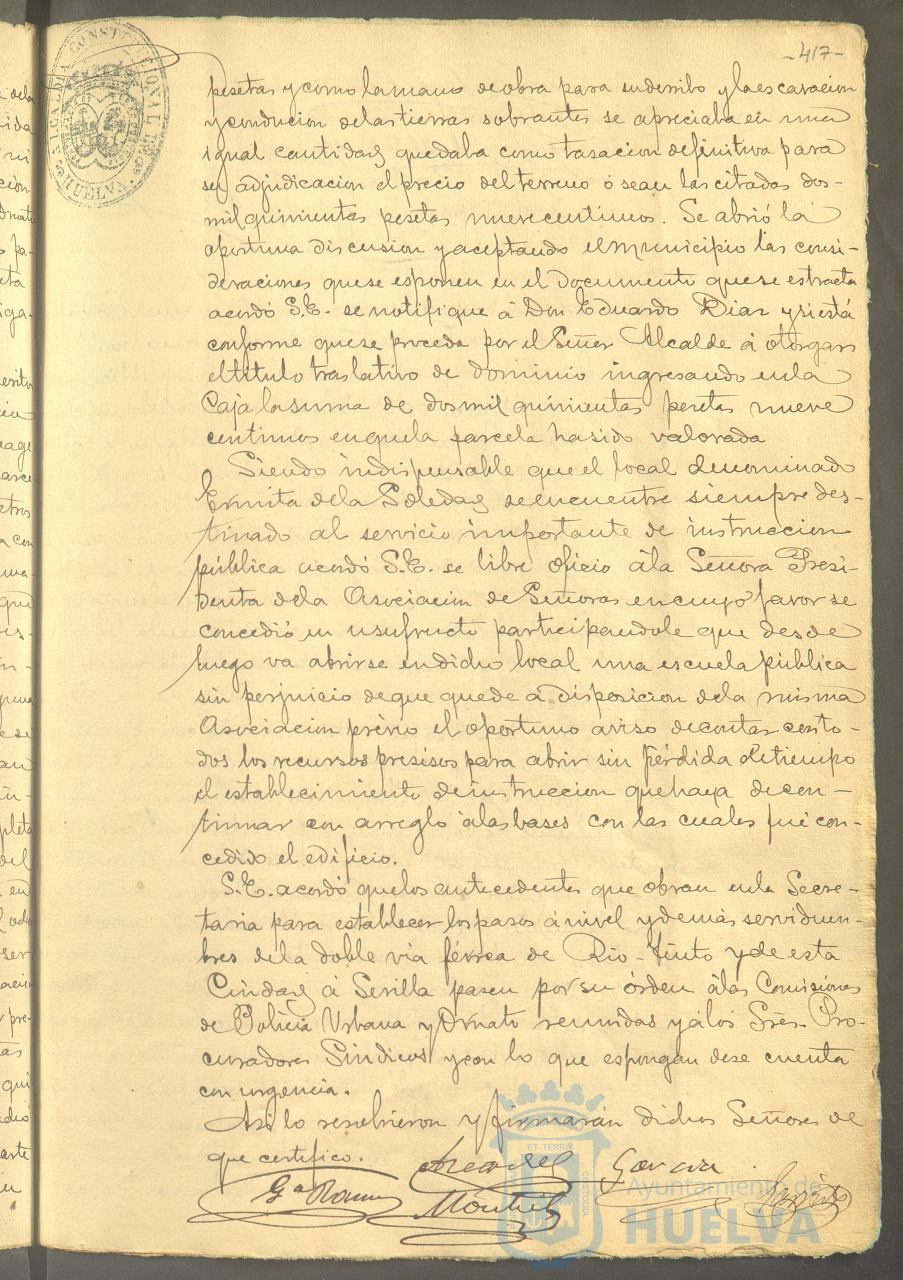 -417-
ALCALDIA CONSTITUCIONAL DE HUELVA
pesetas y como la mano de obra para su derribo y la escavacion
y conducion de las tierras sobrantes se apreciaba en una
igual cantidad, quedaba como tasacion definitiva para
su adjudicacion el precio del terreno ó sean las citadas dos-
mil quinientas pesetas nueve centimos. Se abrió la
oportuna discusion y aceptando el municipio las consi-
deraciones que se esponen en el documento que se estracta
acordó S.E. se notifique á Don Eduardo Diaz y si está
conforme que se proceda por el Señor Alcalde á otorgar
el titulo traslativo de dominio ingresando en la
Caja la suma de dos mil quinientas pesetas nueve
centimos en que la parcela ha sido valorada
Siendo indispensable que el local denominado
Ermita de la Soledad se encuentre siempre des-
tinado al servicio importante de instruccion
pública acordó S.E. se libre oficio á la Señora Presi-
denta de la Asociacion de Señoras en cuyo favor se
concedió en usufructo participandole que desde
luego va abrirse en dicho local una escuela pública
sin perjuicio de que quede á disposicion de la misma
Asociacion prévio el oportuno aviso de contar con to-
dos los recursos presisos para abrir sin pérdida de tiempo
el establecimiento de instruccion que haya de con-
tinuar con arreglo á las bases con las cuales fué con-
cedido el edificio.
S.E. acordó que los antecedentes que obran en la Secre-
taria para establecer los pasos á nivel y demás servidum-
bres de la doble via férrea de Rio-Tinto y de esta
Ciudad á Sevilla pasen por su órden á las Comisiones
de Policia Urbana y Ornato reunidas y á los Sres. Pro-
curadores Sindicos y con lo que espongan dese cuenta
con urgencia.
Asi lo resolvieron y firmarán dichos Señores de
que certifico.
Garcia
Gª Ramos
Montiel
ET TERRAE
CUSTODIA
Ayuntamiento de
HUELVA